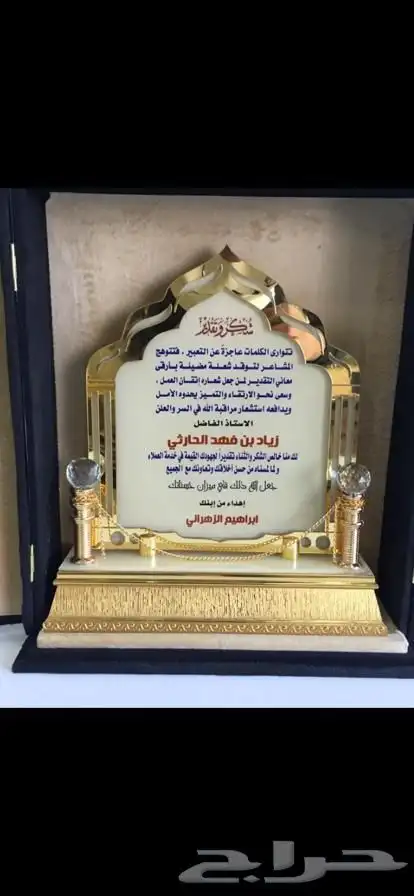 شكر وتقدير
تتوارى الكلمات عاجزة عن التعبير ، فتتوهج
المشاعر لتوقد شعلة مضيئة بأرقى
معاني التقدير لمن جعل شعاره إتقان العمل ،
وسعى نحو الارتقاء والتميز يحدوه الأمل
ويدافعه استشعار مراقبة الله في السر والعلن
الاستاذ الفاضل
زياد بن فهد الحارثي
لك منا خالص الشكر والثناء تقديراً لجهودك القيمة في خدمة العملاء
ولما لمسناه من حسن أخلاقك وتعاونك مع الجميع
جعل الله ذلك في ميزان حسناتك
إهداء من إبنك
ابراهيم الزهراني
حراج